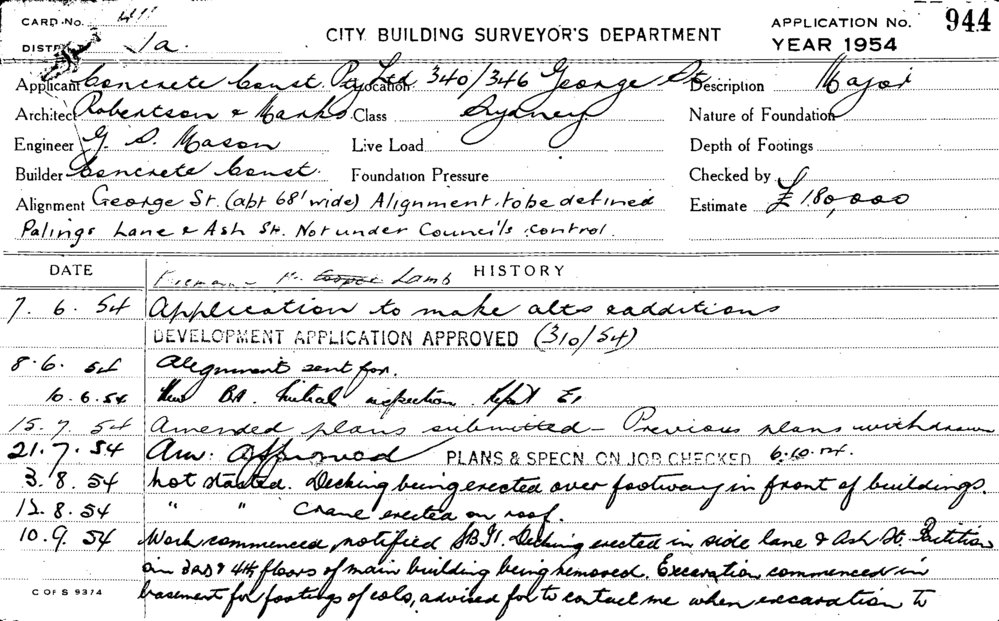 CARD No. 411
DISTRICT 1a.
CITY BUILDING SURVEYOR'S DEPARTMENT
APPLICATION No. 944
YEAR 1954
Applicant Concrete Const. Pty Ltd. Location 340/346 George St Description Major
Architect Robertson & Marks Class Sydney Nature of Foundation
Engineer G. S. Mason Live Load Depth of Footings
Builder Concrete Const. Foundation Pressure Checked by
Alignment George St. (abt 68' wide) Alignment to be defined Estimate £180,000
Palings Lane & Ash St. Not under Council's control.
DATE HISTORY
Lamb
7. 6. 54 Application to make alts & additions
DEVELOPMENT APPLICATION APPROVED (310/54)
8. 6. 54 Alignment sent for.
10. 6. 54 BA. Initial inspection. Report
15. 7. 54 Amended plans submitted – Previous plans withdrawn
21. 7. 54 Approved PLANS & SPECN. ON JOB CHECKED 6.10.54.
3. 8. 54 Not started. Decking being erected over footway in front of buildings.
12. 8. 54 " " Crane erected on roof.
10. 9. 54 Work commenced, notified Decking erected in side lane & Ash St. Partition
on 3rd & 4th floors of main building being removed. Excavation commenced in
basement for footings of cols, advised to contact me when excavation to
C OF S 9374